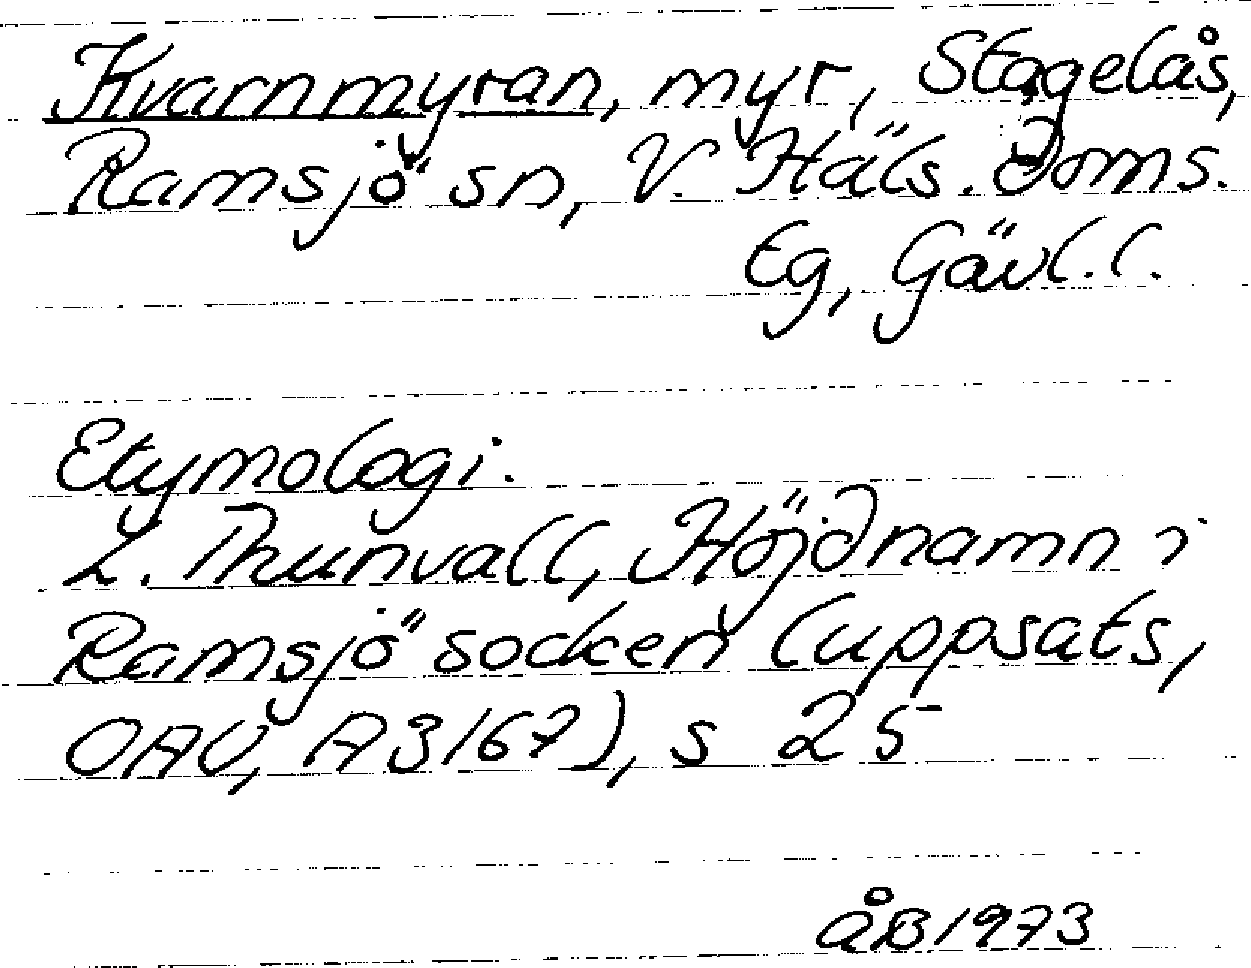 Kvarnmyran, myr, Stågelås,
Ramsjö sn, V. Häls. Doms.
Eg, Gävl.l.
Etymologi.
L. Thunvall, Höjdnamn i
Ramsjö socken (uppsats,
OAU, A3167), s 25
ÅB 1973